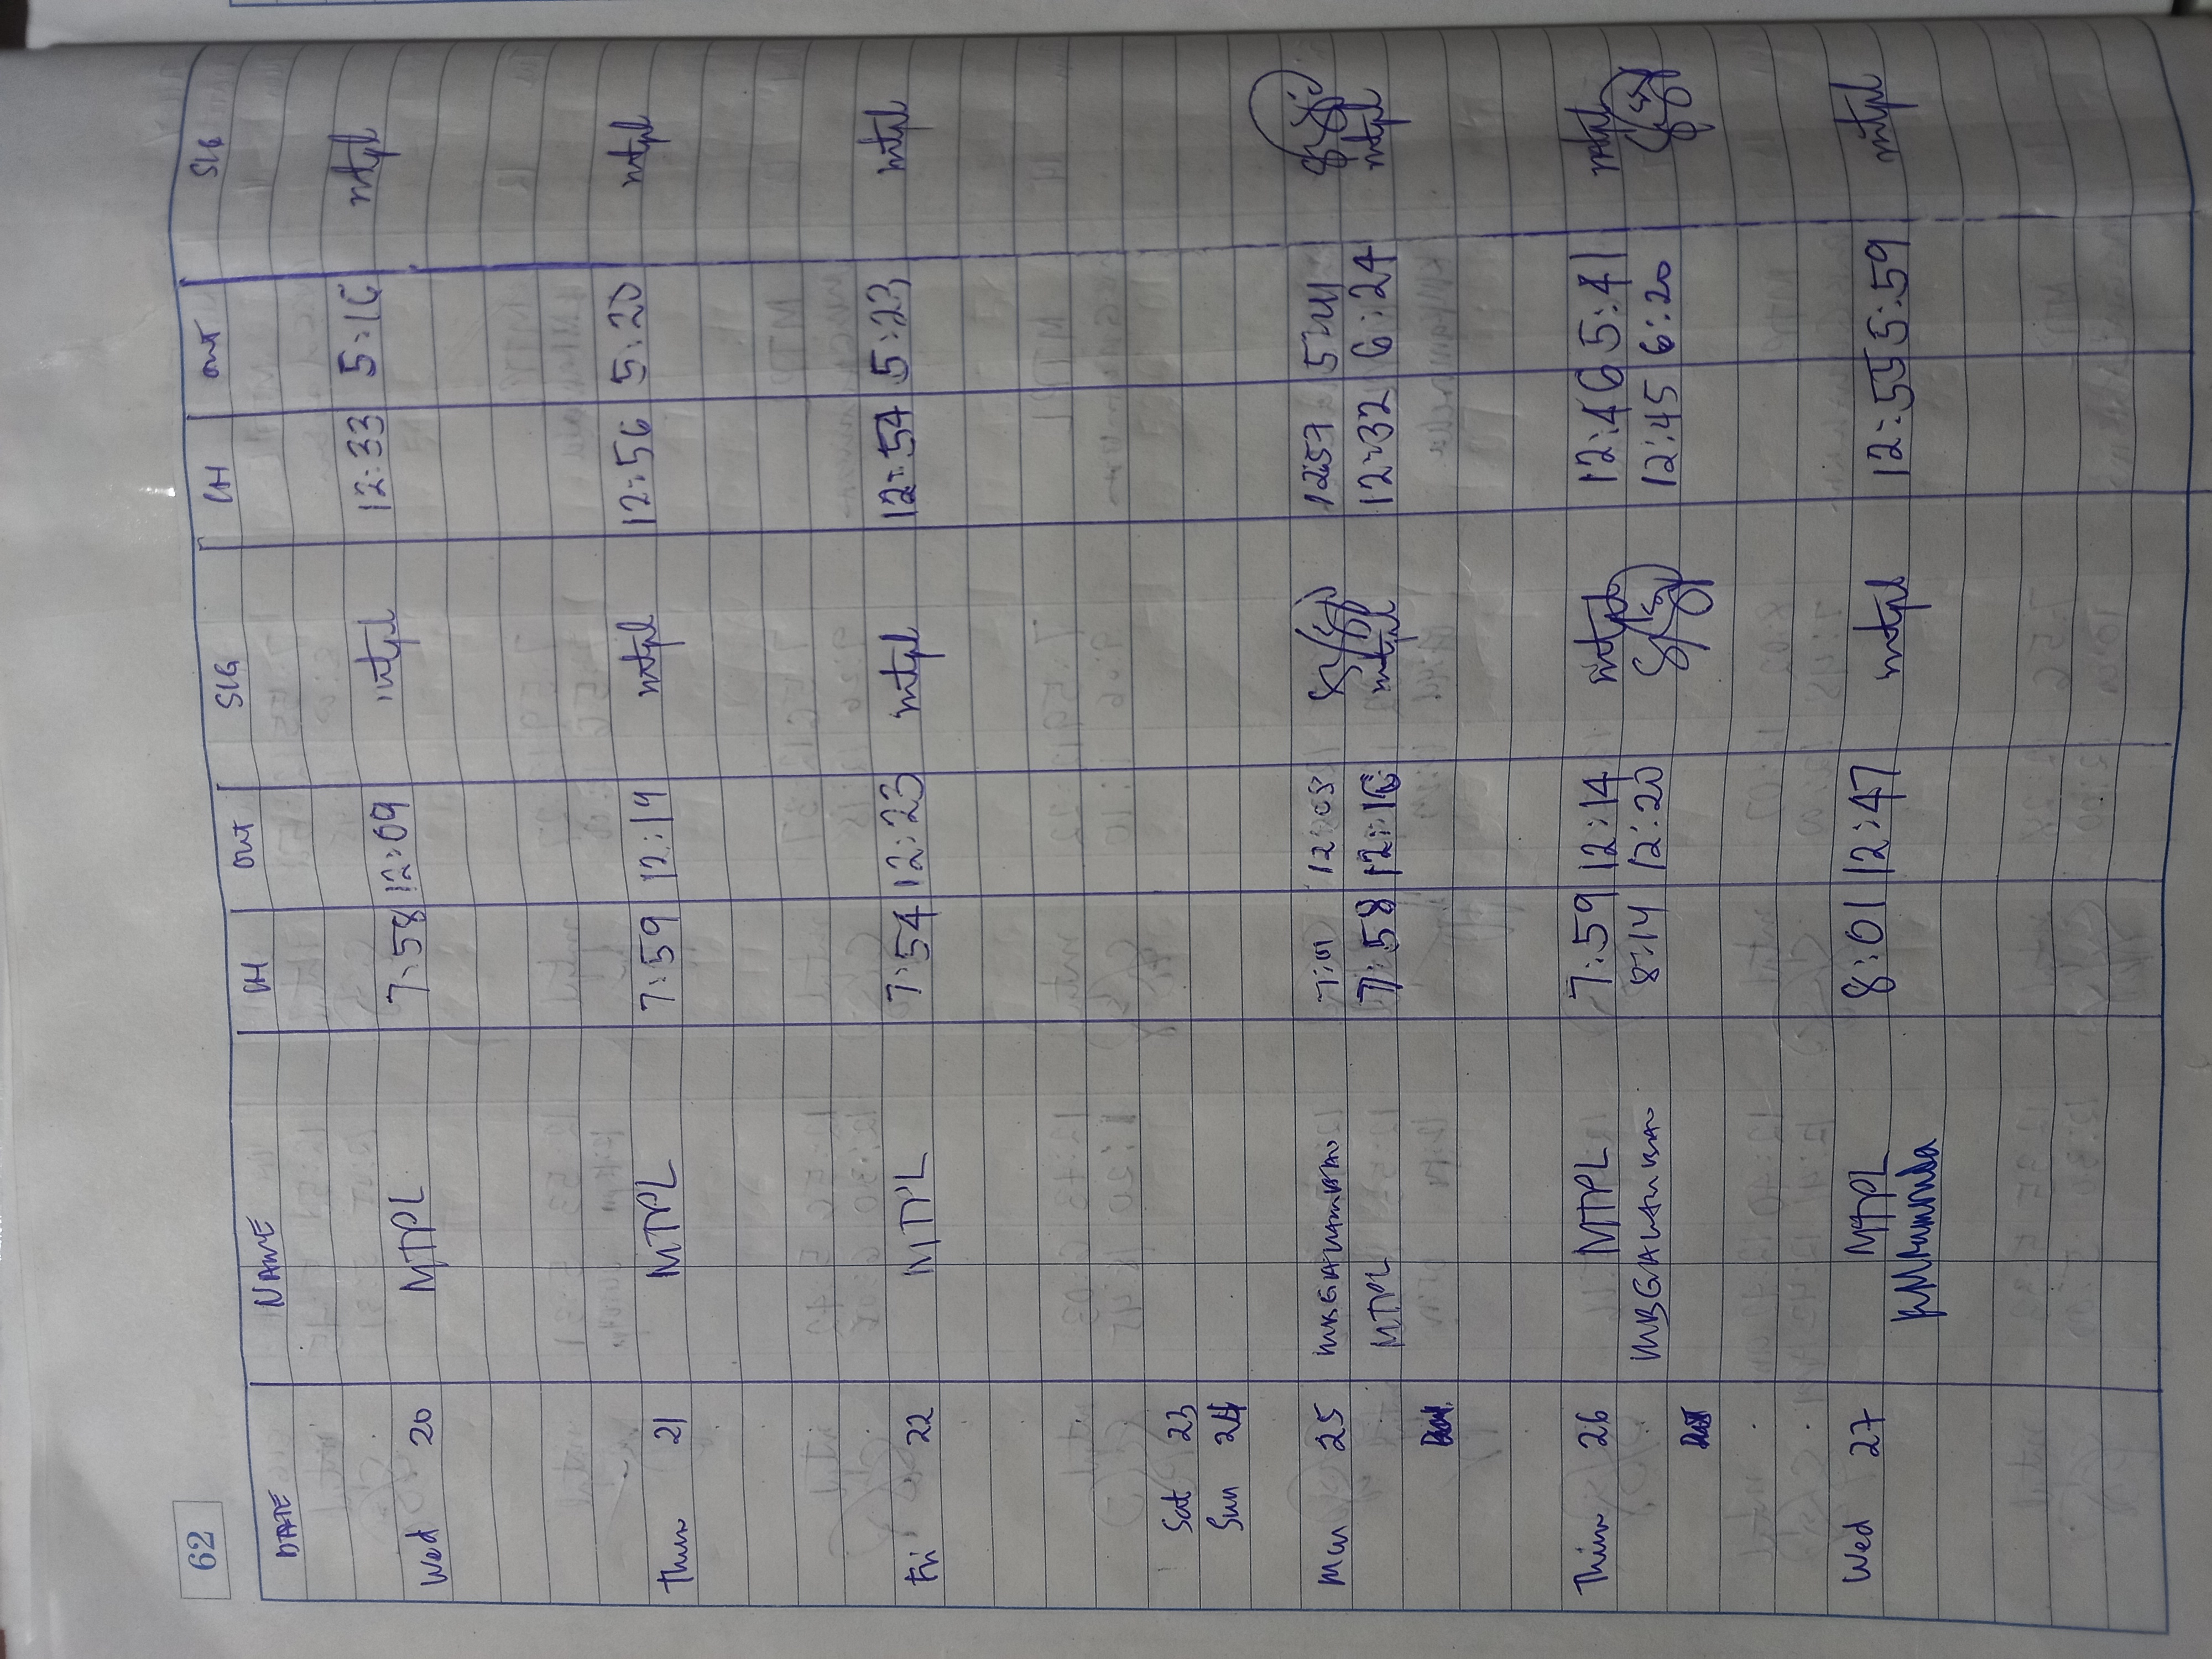 62
DATE NAME IN OUT SIG IN OUT SIG
Wed 20 MTPL 7:58 12:09 mtpl 12:33 5:16 mtpl
Thur 21 MTPL 7:59 12:14 mtpl 12:56 5:20 mtpl
Fri 22 MTPL 7:54 12:23 mtpl 12:54 5:23 mtpl
Sat 23
Sun 24
Mon 25 12:03 12:57
MTPL 7:58 12:16 mtpl 12:32 6:24 mtpl
26 MTPL 7:59 12:14 mtpl 12:46 5:41 mtpl
8:14 12:20 12:45 6:20
Wed 27 MTPL 8:01 12:47 mtpl 12:55 5:59 mtpl